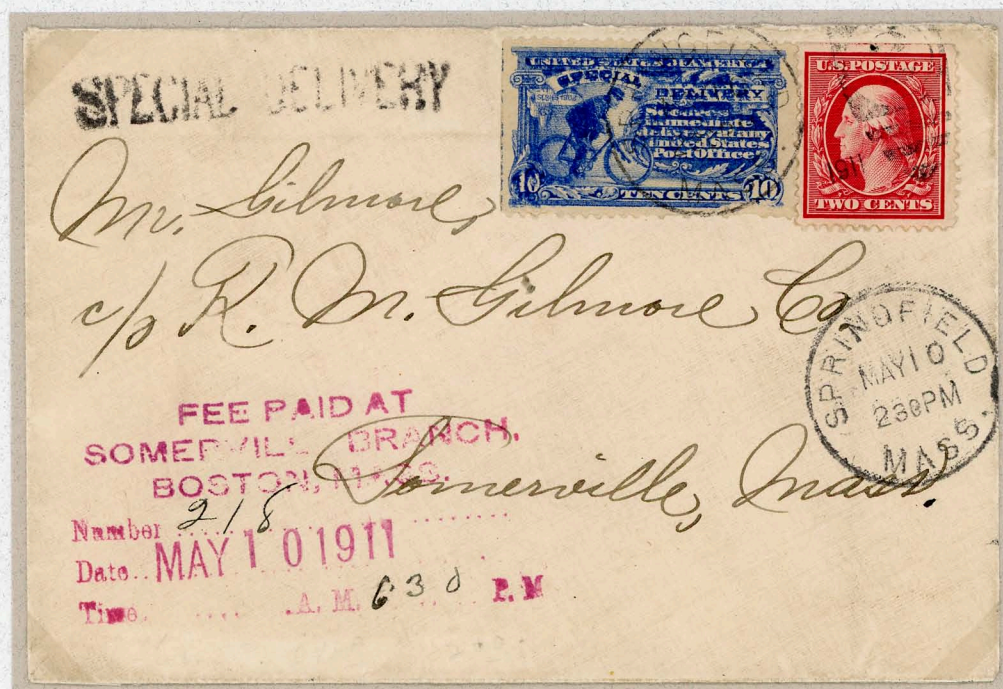 SPECIAL DELIVERY
UNITED STATES OF AMERICA
SPECIAL
DELIVERY
Secures
immediate
delivery at any
United States
Post Office
10 TEN CENTS 10
U.S. POSTAGE
TWO CENTS
SPRINGFIELD
MA
Mr. Gilmore,
c/o R. M. Gilmore Co
SPRINGFIELD
MAY 10
230PM
MASS.
FEE PAID AT
SOMERVILL BRANCH.
BOSTON, MASS.
Somerville, Mass.
Number 218
Date MAY 10 1911
Time A. M. 630 P. M